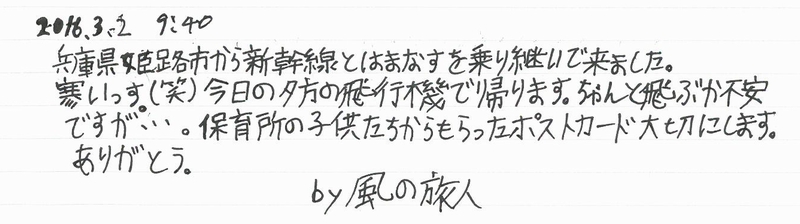 2016.3.2 9:40
兵庫県姫路市から新幹線とはまなすを乗り継いで来ました。
寒いっす。(笑)今日の夕方の飛行機で帰ります。ちゃんと飛ぶか不安
ですが…。保育所の子供たちからもらったポストカード大切にします。
ありがとう。
by 風の旅人